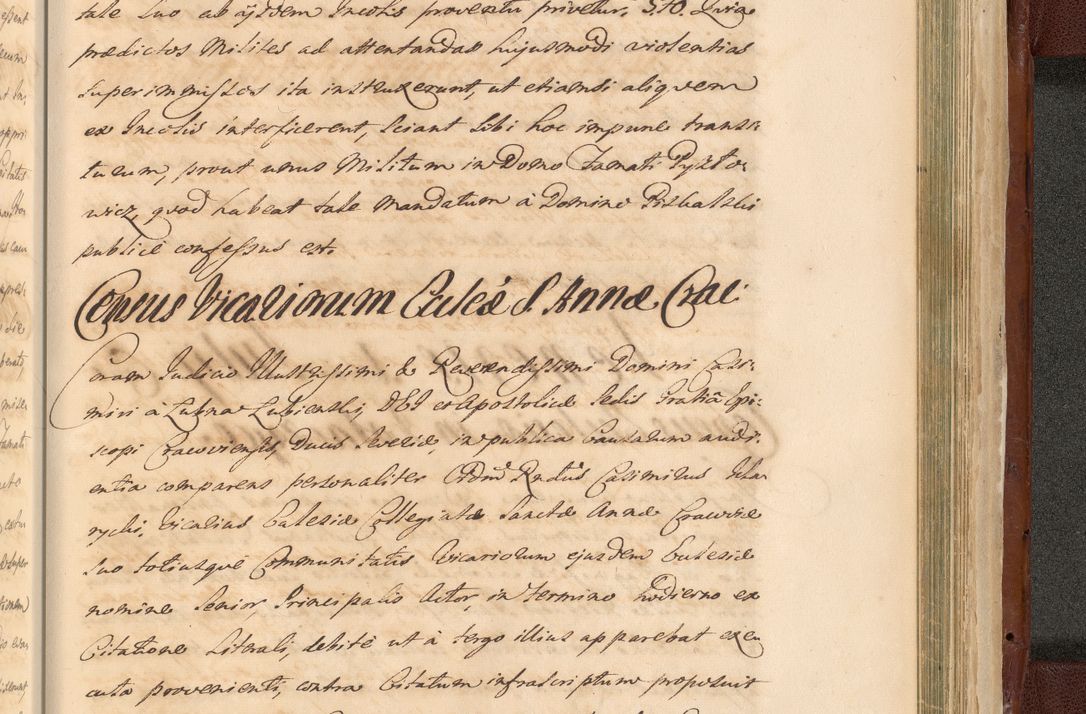 tale suo ab ijsdem Incolis proventu privetur. 5to Quia
prædictos Milites ad attentandas hujusmodi violentias
superimmissos ita instruxerunt, ut etiamsi aliquem
ex Incolis interficerent, sciant sibi hoc impune transi:
turum, prout unus Militum in Domo Famati Pyzto:
wicz, quod habeat tale mandatum à Domino
publicè confessus est.
Census Vicariorum Eccleæ S. Annæ Crac:
Coram Iudicio Illustrissimi & Reverendissimi Domini Casi:
miri à Łubna Łubienski, DEI et Apostolicæ Sedis Gratiâ Epi:
scopi Cracoviensis, Ducis Severiæ, in publica Causarum audi:
entia comparens personaliter Rndus Casimirus
Vicarius Eclesiæ Collegiatæ Sanctæ Annæ Cracoviæ
suo totiusque Communitatis Vicariorum ejusdem Ecclesiæ
nomine Senior Principalis Actor, in Termino hodierno ex
Citatione Literali, debitè ut à tergo illius apparebat exe
cuta provenienti, contra Citatum infrascriptum proposuit